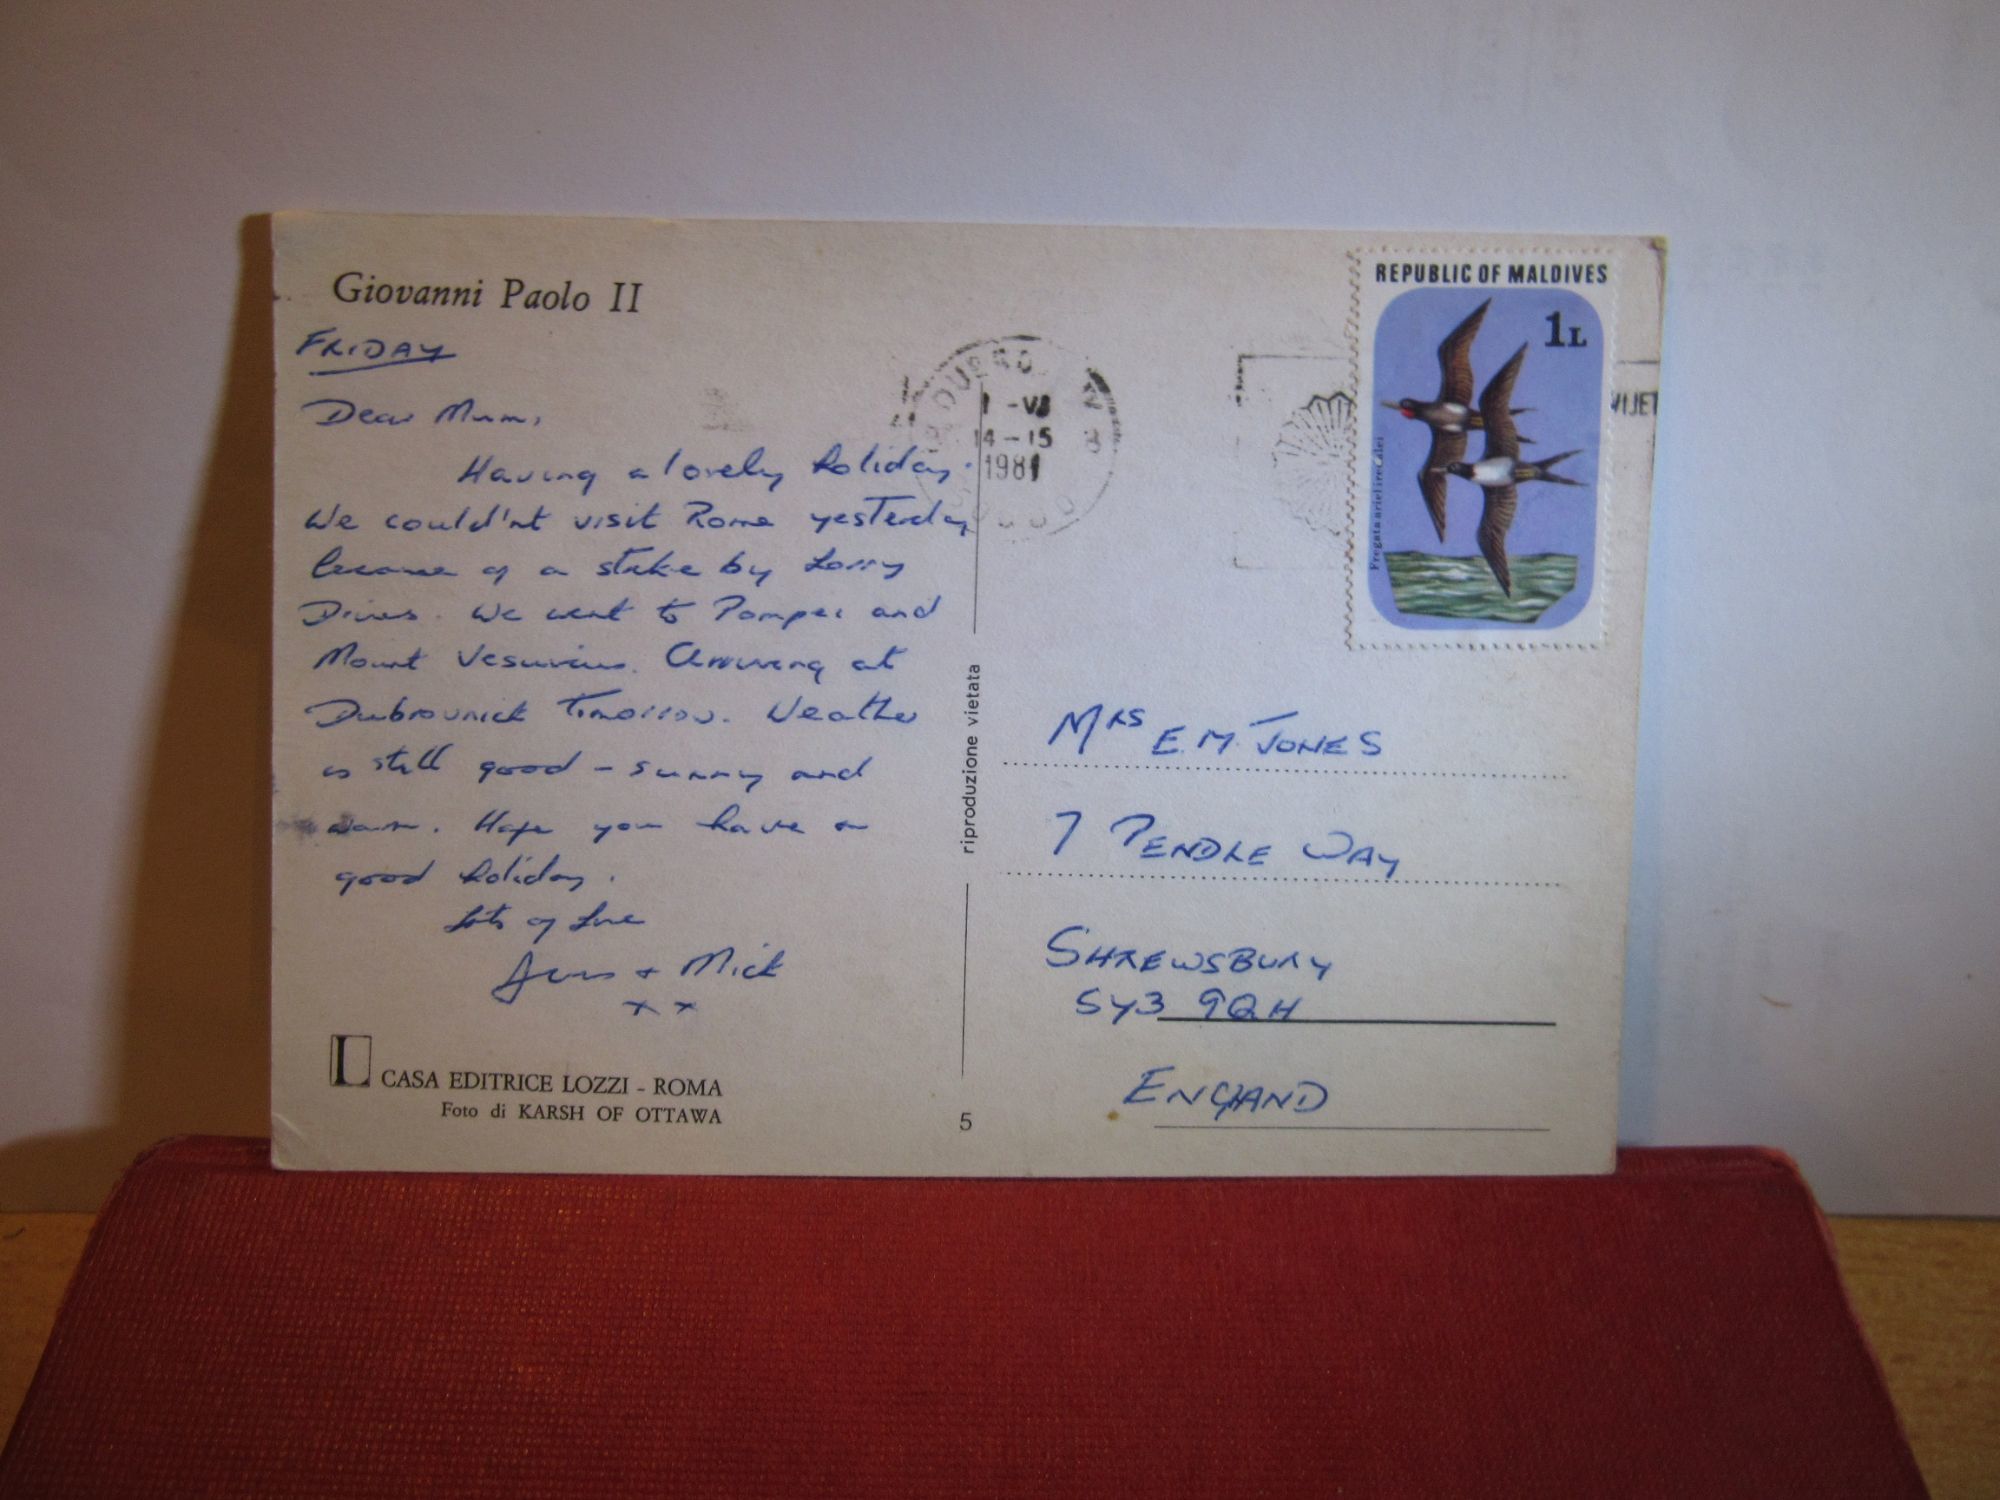 Giovanni Paolo II
FRIDAY
Dear Mum,
Having a lovely holiday.
We could'nt visit Rome yesterday
because of a strike by Lorry
Drivers. We went to Pompei and
Mount Vesuvius. Arriving at
Dubrovnick Tomorrow. Weather
is still good – sunny and
warm. Hope you have a
good holiday.
Lots of Love
+ Mick
x x
CASA EDITRICE LOZZI - ROMA
Foto di KARSH OF OTTAWA
riproduzione vietata
5
14-15
1981
REPUBLIC OF MALDIVES
1L
Fregata ariel iredalei
MRS E.M. JONES
7 PENDLE WAY
SHREWSBURY
SY3 9QH
ENGLAND